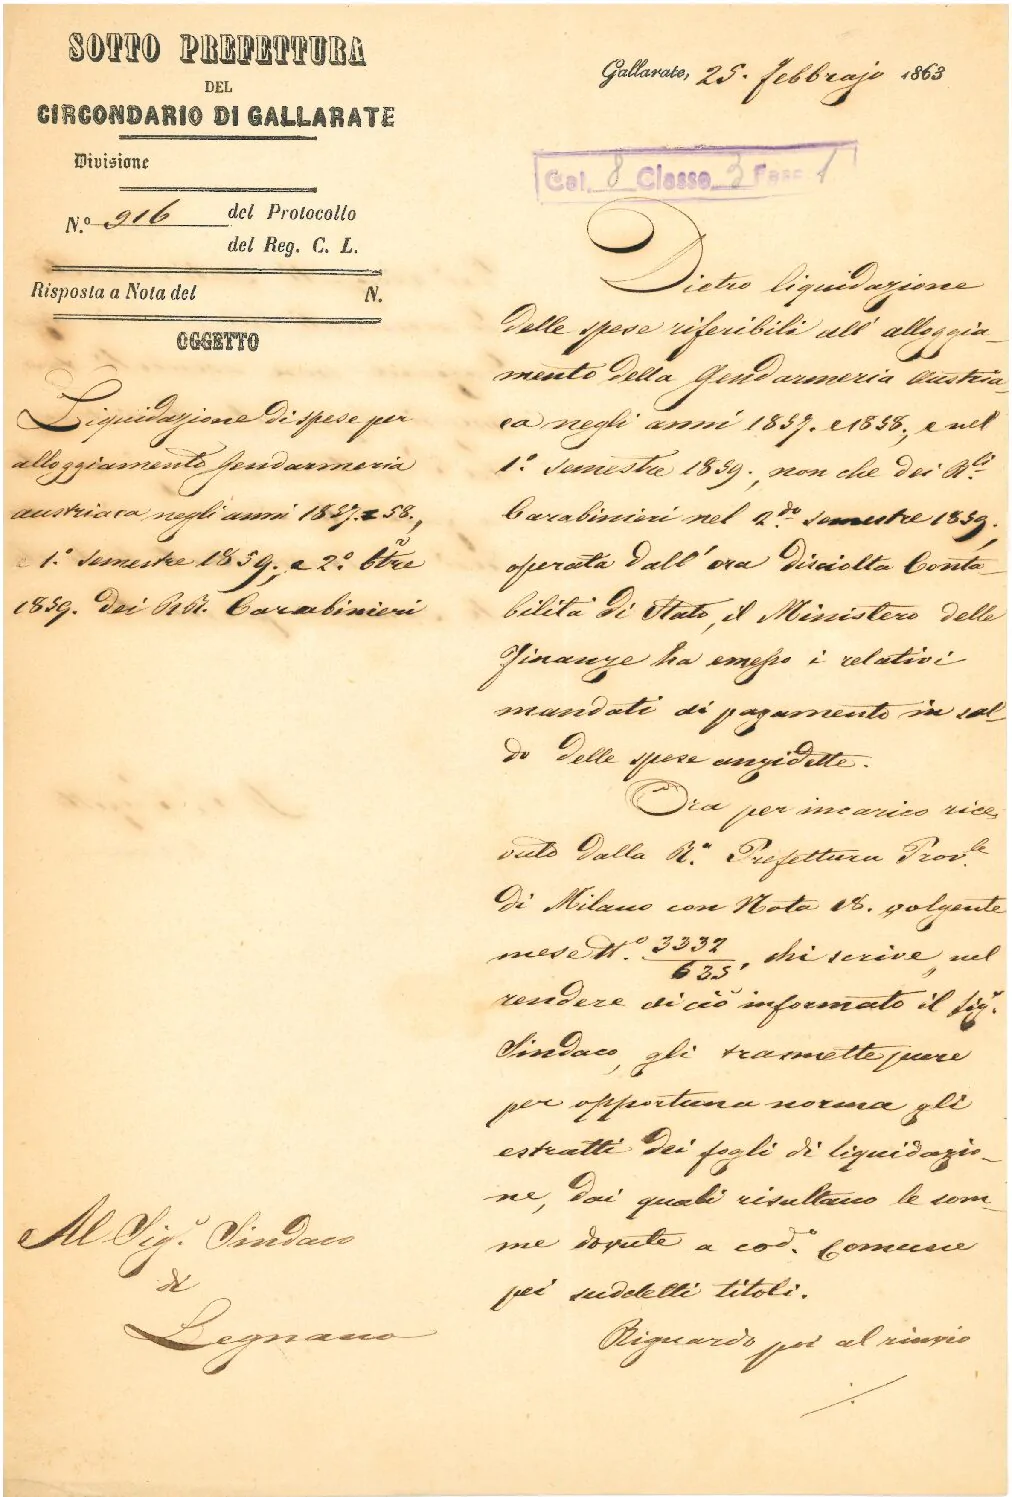 SOTTO PREFETTURA
DEL
CIRCONDARIO DI GALLARATE
Divisione
N.º 916 del Protocollo
del Reg. C. L.
Risposta a Nota del N.
OGGETTO
Liquidazione di spese per
alloggiamento Gendarmeria
austriaca negli anni 1857. e 58.,
e 1.º semestre 1859., e 2.º 6tre
1859. dei RR. Carabinieri
Al Sig.r Sindaco
di
Legnano
Gallarate, 25. Febbrajo 1863
Cat. 8 Classe 3 Fasc. 1
Dietro liquidazione
delle spese riferibili all' alloggia-
mento della Gendarmeria Austria
ca negli anni 1857. e 1858., e nel
1.º semestre 1859., non che dei R.li
Carabinieri nel 2.do semestre 1859.,
operata dall' ora disciolta Conta-
bilità di Stato, il Ministero delle
Finanze ha emesso i relativi
mandati di pagamento in sal-
do delle spese anzidette.
Ora per incarico rice-
vuto dalla R.a Prefettura Prov.le
di Milano con Nota 18. volgente
mese N.º 3332/635, chi scrive, nel
rendere di ciò informato il Sig.r
Sindaco, gli trasmette pure
per opportuna norma gli
estratti dei fogli di liquidazio-
ne, dai quali risultano le som-
me dovute a cod.º Comune
pei suddetti titoli.
Riguardo poi al rinvio